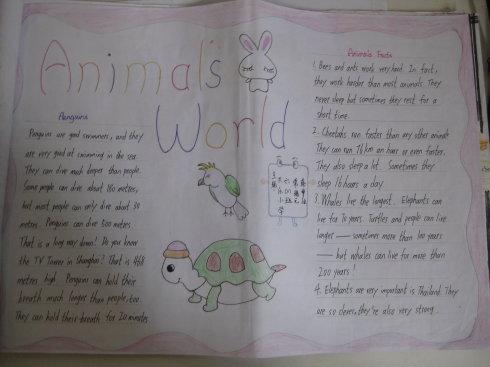 Animals
World
Penguins
Penguins are good swimmers, and they
are very good at swimming in the sea.
They can dive much deeper than people.
Some people can dive about 160 metres,
but most people can only dive about 30
metres. Penguins can dive 500 metres.
That is a long way down! Do you know
the TV Tower in Shanghai? That is 468
metres high. Penguins can hold their
breath much longer than people, too.
They can hold their breath for 20 minutes.
Animals Facts
1. Bees and ants work very hard. In fact,
they work harder than most animals. They
never sleep but sometimes they rest for a
short time.
2. Cheetahs run faster than any other animal.
They can run 74 km an hour or even faster.
They also sleep a lot. Sometimes they
sleep 16 hours a day.
3. Whales live the longest. Elephants can
live for 70 years. Turtles and people can live
longer — sometimes more than 100 years
— but whales can live for more than
200 years!
4. Elephants are very important is Thailand. They
are so clever, they're also very strong.